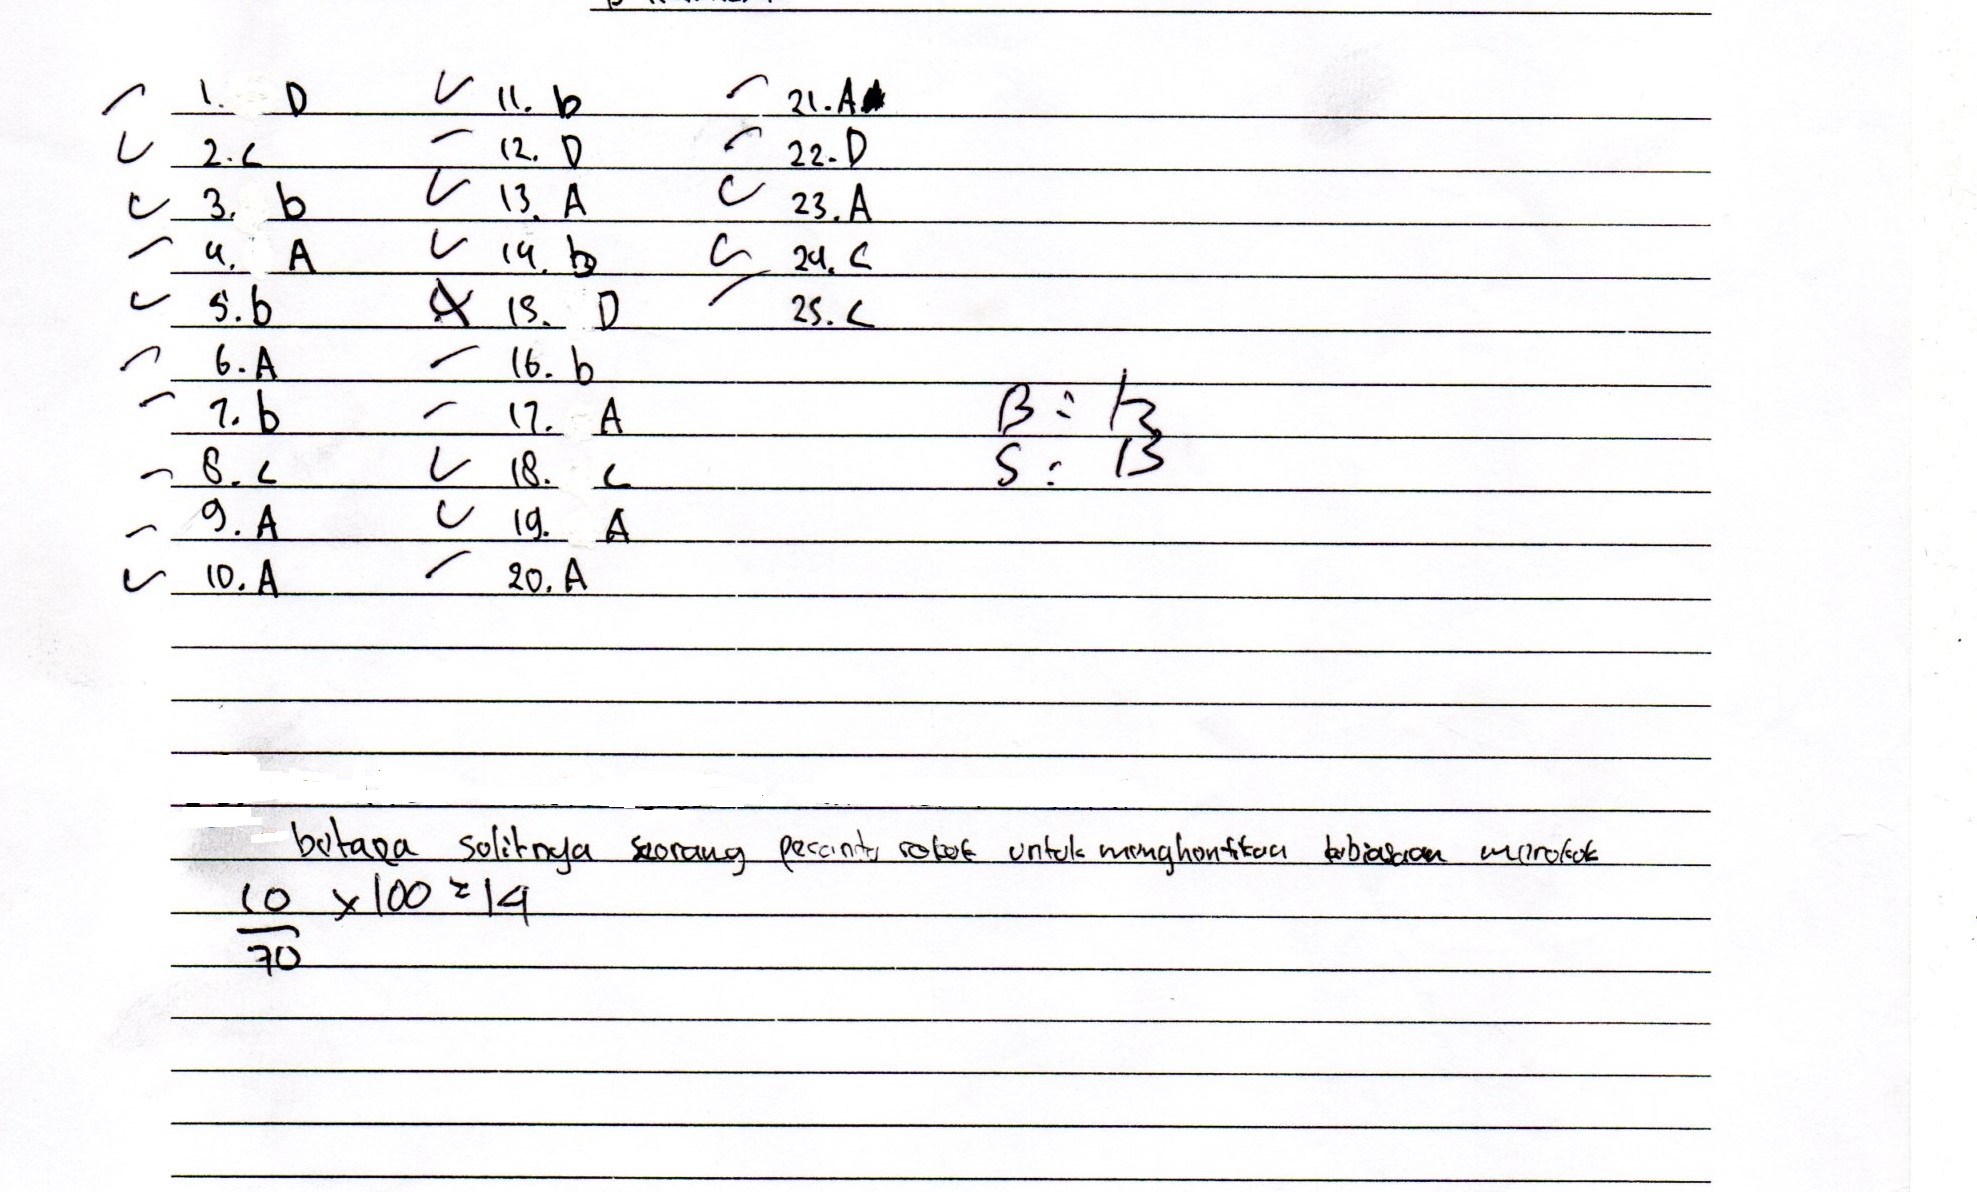 1. D
2. c
3. b
4. A
5. b
6. A
7. b
8. c
9. A
10. A
11. b
12. D
13. A
14. b
15. D
16. b
17. A
18. c
19. A
20. A
21. A
22. D
23. A
24. c
25. c
B = 12
S : 13
betapa sulitnya seorang pecinta rokok untuk menghentikan kebiasaan merokok
10 x 100 = 14
70